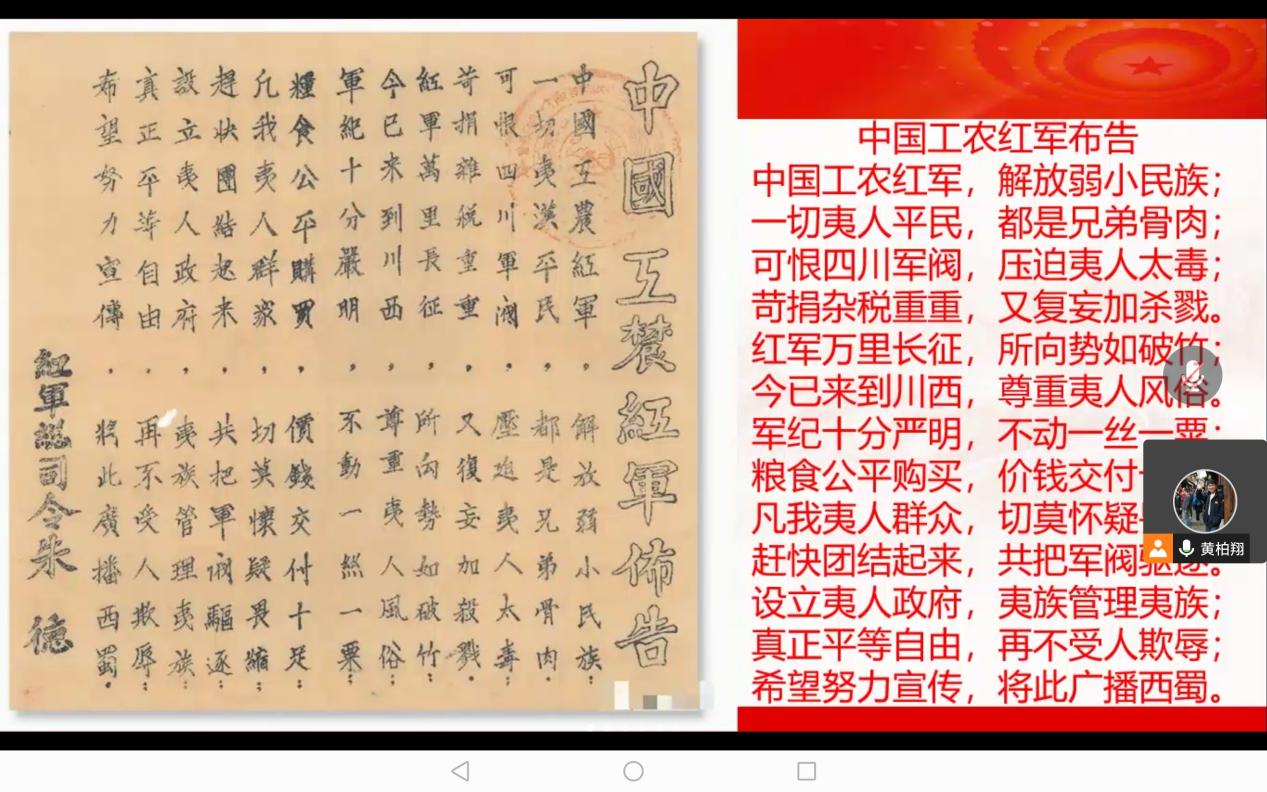 中國工農紅軍佈告
中國工農紅軍，解放弱小民族：
一切夷漢平民，都是兄弟骨肉：
可恨四川軍閥，壓迫夷人太毒；
苛捐雜稅重重，又復妄加殺戮。
紅軍萬里長征，所向勢如破竹：
今已来到川西，尊重夷人風俗；
軍紀十分嚴明，不動一絲一粟：
糧食公平購買，價錢交付十足：
凡我夷人群眾，切莫懷疑畏縮；
趕快團結起来，共把軍閥驅逐：
設立夷人政府，夷族管理夷族；
真正平等自由，再不受人欺辱：
希望努力宣傳，將此廣播西蜀。
紅軍總司令朱德
中国工农红军布告
中国工农红军，解放弱小民族；
一切夷人平民，都是兄弟骨肉；
可恨四川军阀，压迫夷人太毒；
苛捐杂税重重，又复妄加杀戮。
红军万里长征，所向势如破竹；
今已来到川西，尊重夷人风俗。
军纪十分严明，不动一丝一粟；
粮食公平购买，价钱交付
凡我夷人群众，切莫怀疑
赶快团结起来，共把军阀驱逐。
设立夷人政府，夷族管理夷族；
真正平等自由，再不受人欺辱；
希望努力宣传，将此广播西蜀。
黄柏翔